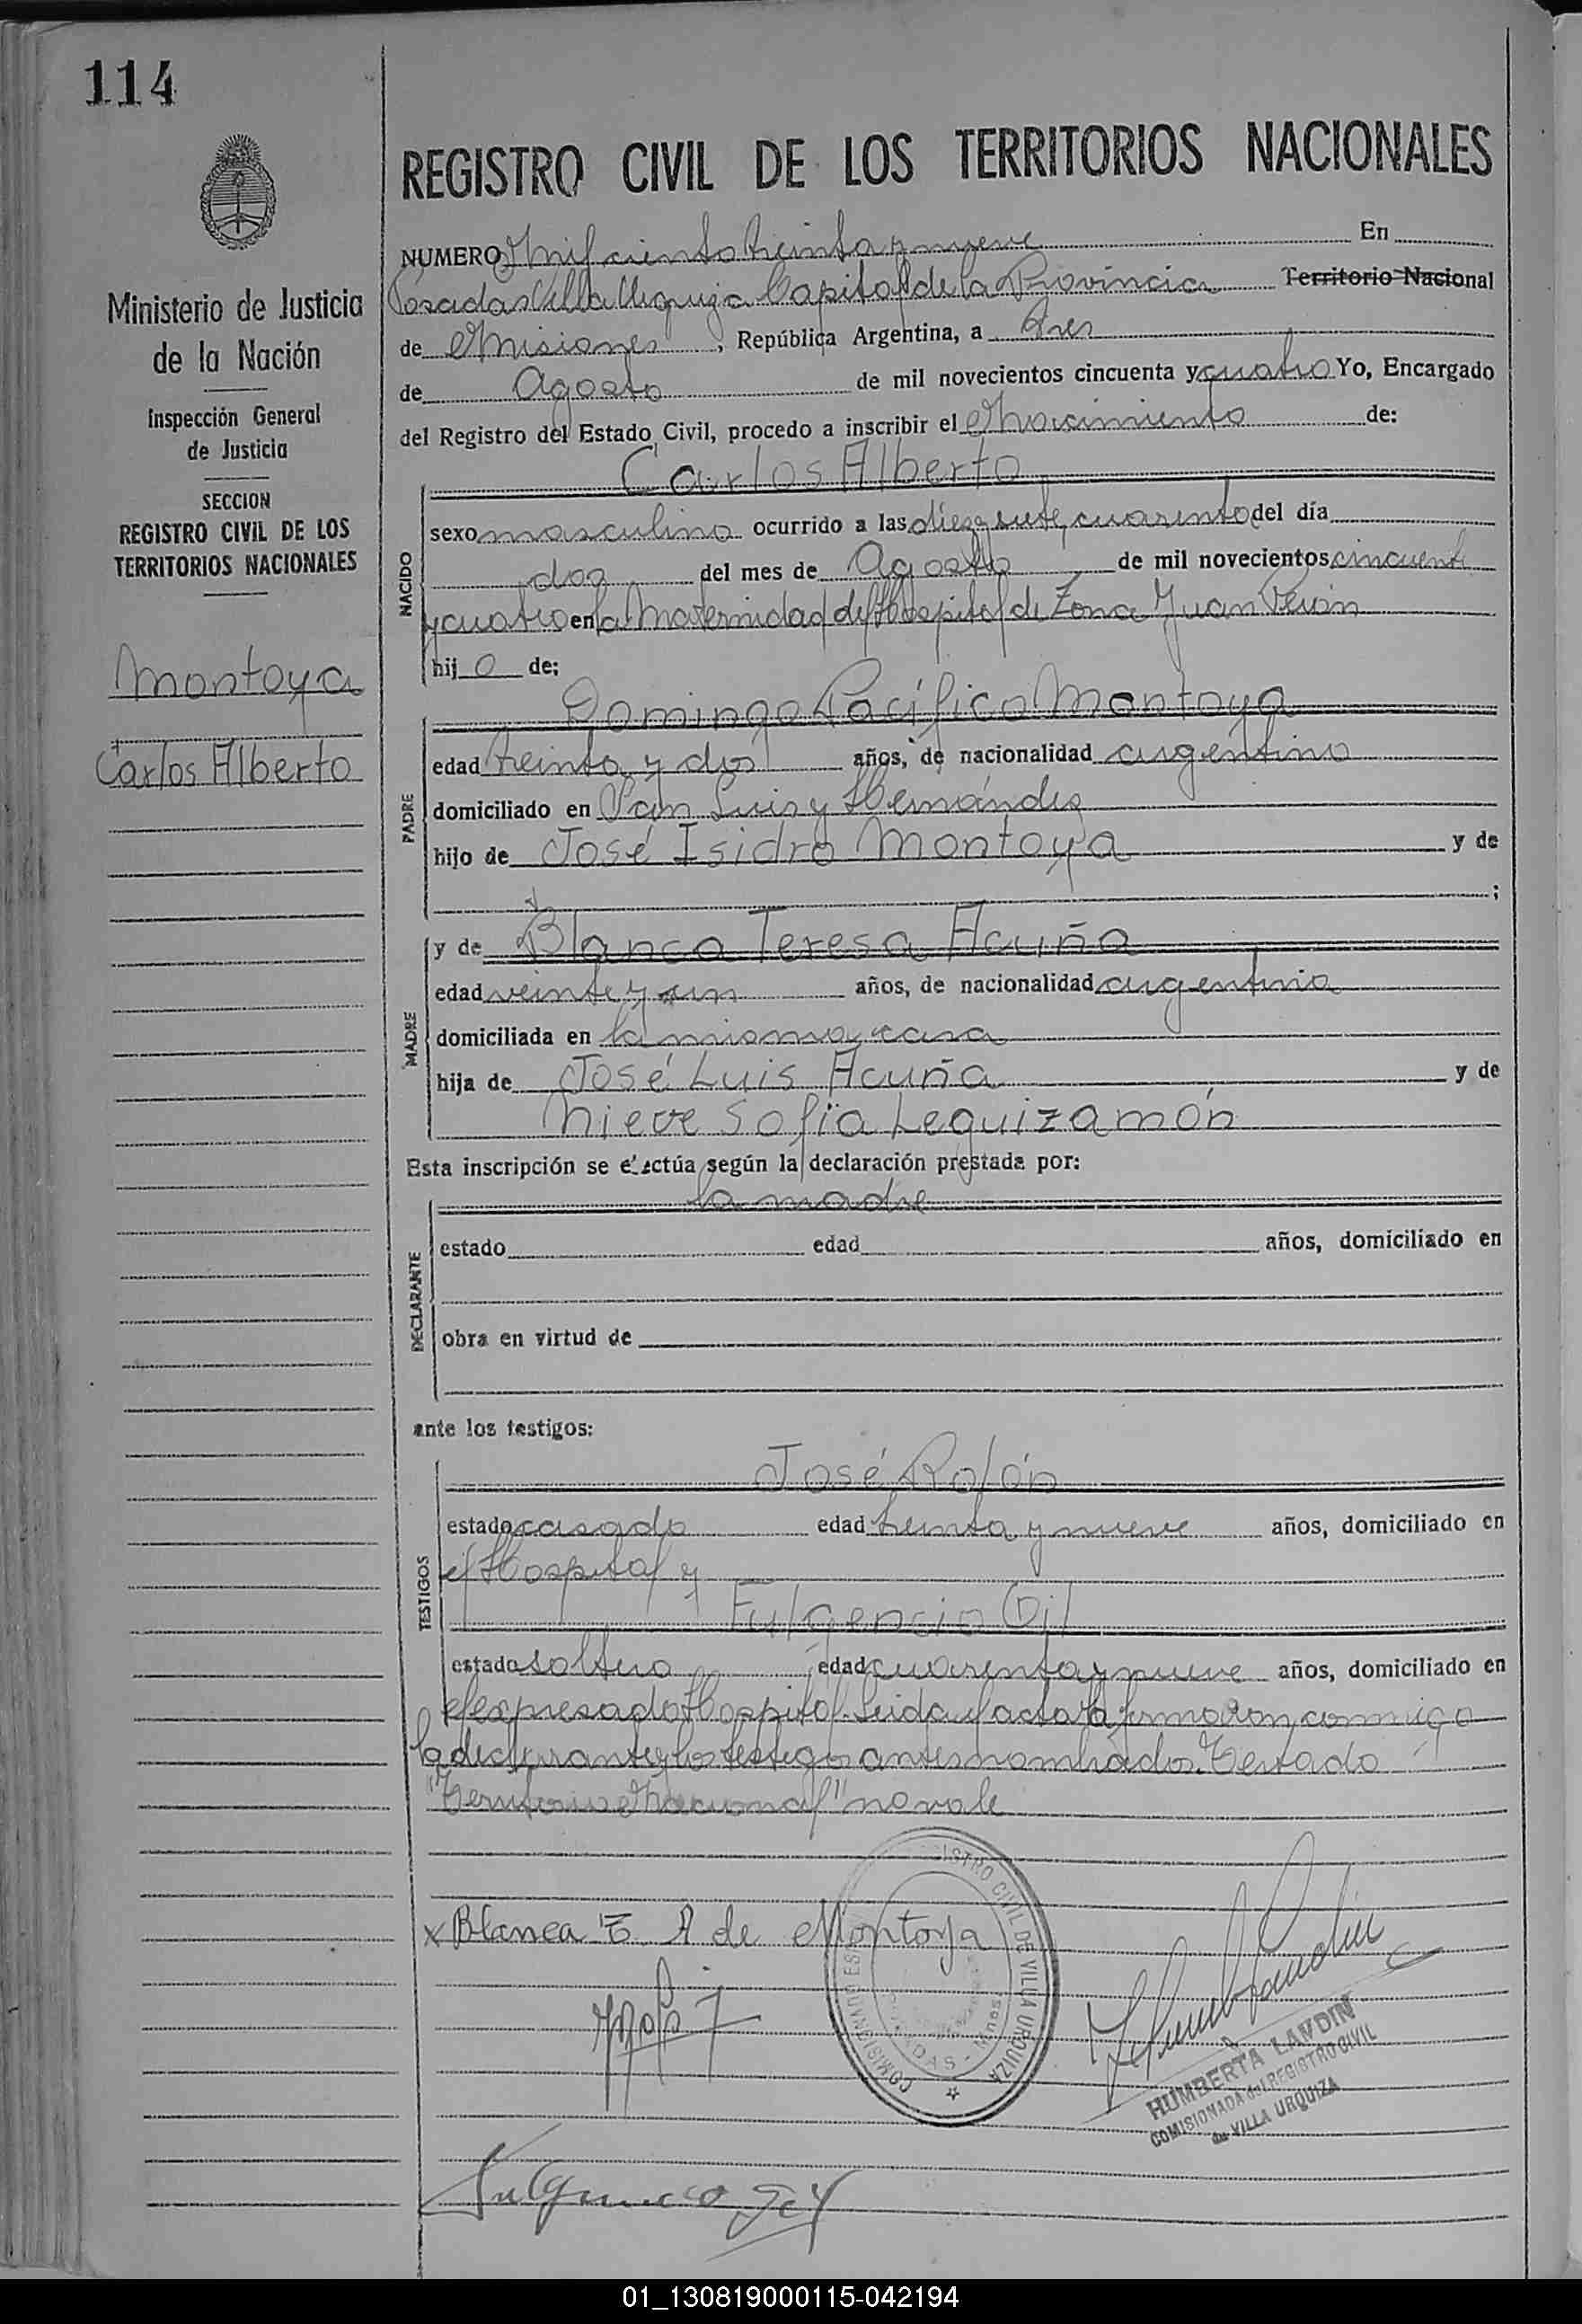 114
REGISTRO CIVIL DE LOS TERRITORIOS NACIONALES
Ministerio de Justicia
de la Nación
Inspección General
de Justicia
SECCION
REGISTRO CIVIL DE LOS
TERRITORIOS NACIONALES
Montoya
Carlos Alberto
NUMERO Mil ciento treinta y nueve En
Posadas Villa Urquiza Capital de la Provincia Territorio Nacional
de Misiones, República Argentina, a tres
de Agosto de mil novecientos cincuenta y cuatro Yo, Encargado
del Registro del Estado Civil, procedo a inscribir el Nacimiento de:
NACIDO
Carlos Alberto
sexo masculino ocurrido a las diez y siete, cuarenta del día
dos del mes de Agosto de mil novecientos cincuenta
y cuatro en la Maternidad del Hospital de Zona Juan Perón
hijo de:
PADRE
Domingo Pacífico Montoya
edad treinta y dos años, de nacionalidad argentino
domiciliado en San Luis y Hernández
hijo de José Isidro Montoya y de
;
MADRE
y de Blanca Teresa Acuña
edad veinte y un años, de nacionalidad argentina
domiciliada en la misma casa
hija de José Luis Acuña y de
Nieve Sofía Leguizamón
Esta inscripción se efectúa según la declaración prestada por:
DECLARANTE
la madre
estado edad años, domiciliado en
obra en virtud de
ante los testigos:
TESTIGOS
José Rolón
estado casado edad treinta y nueve años, domiciliado en
el Hospital y
Fulgencio Gil
estado soltero edad cuarenta y nueve años, domiciliado en
el expresado Hospital. Leida el acta la firmaron conmigo
la declarante y los testigos antes nombrados. Testado
"Territorio Nacional" no vale
x Blanca T. A de Montoya
REGISTRO CIVIL DE VILLA URQUIZA
HUMBERTA LANDIN
COMISIONADA del REGISTRO CIVIL
de VILLA URQUIZA
Fulgencio Gil
01_130819000115-042194